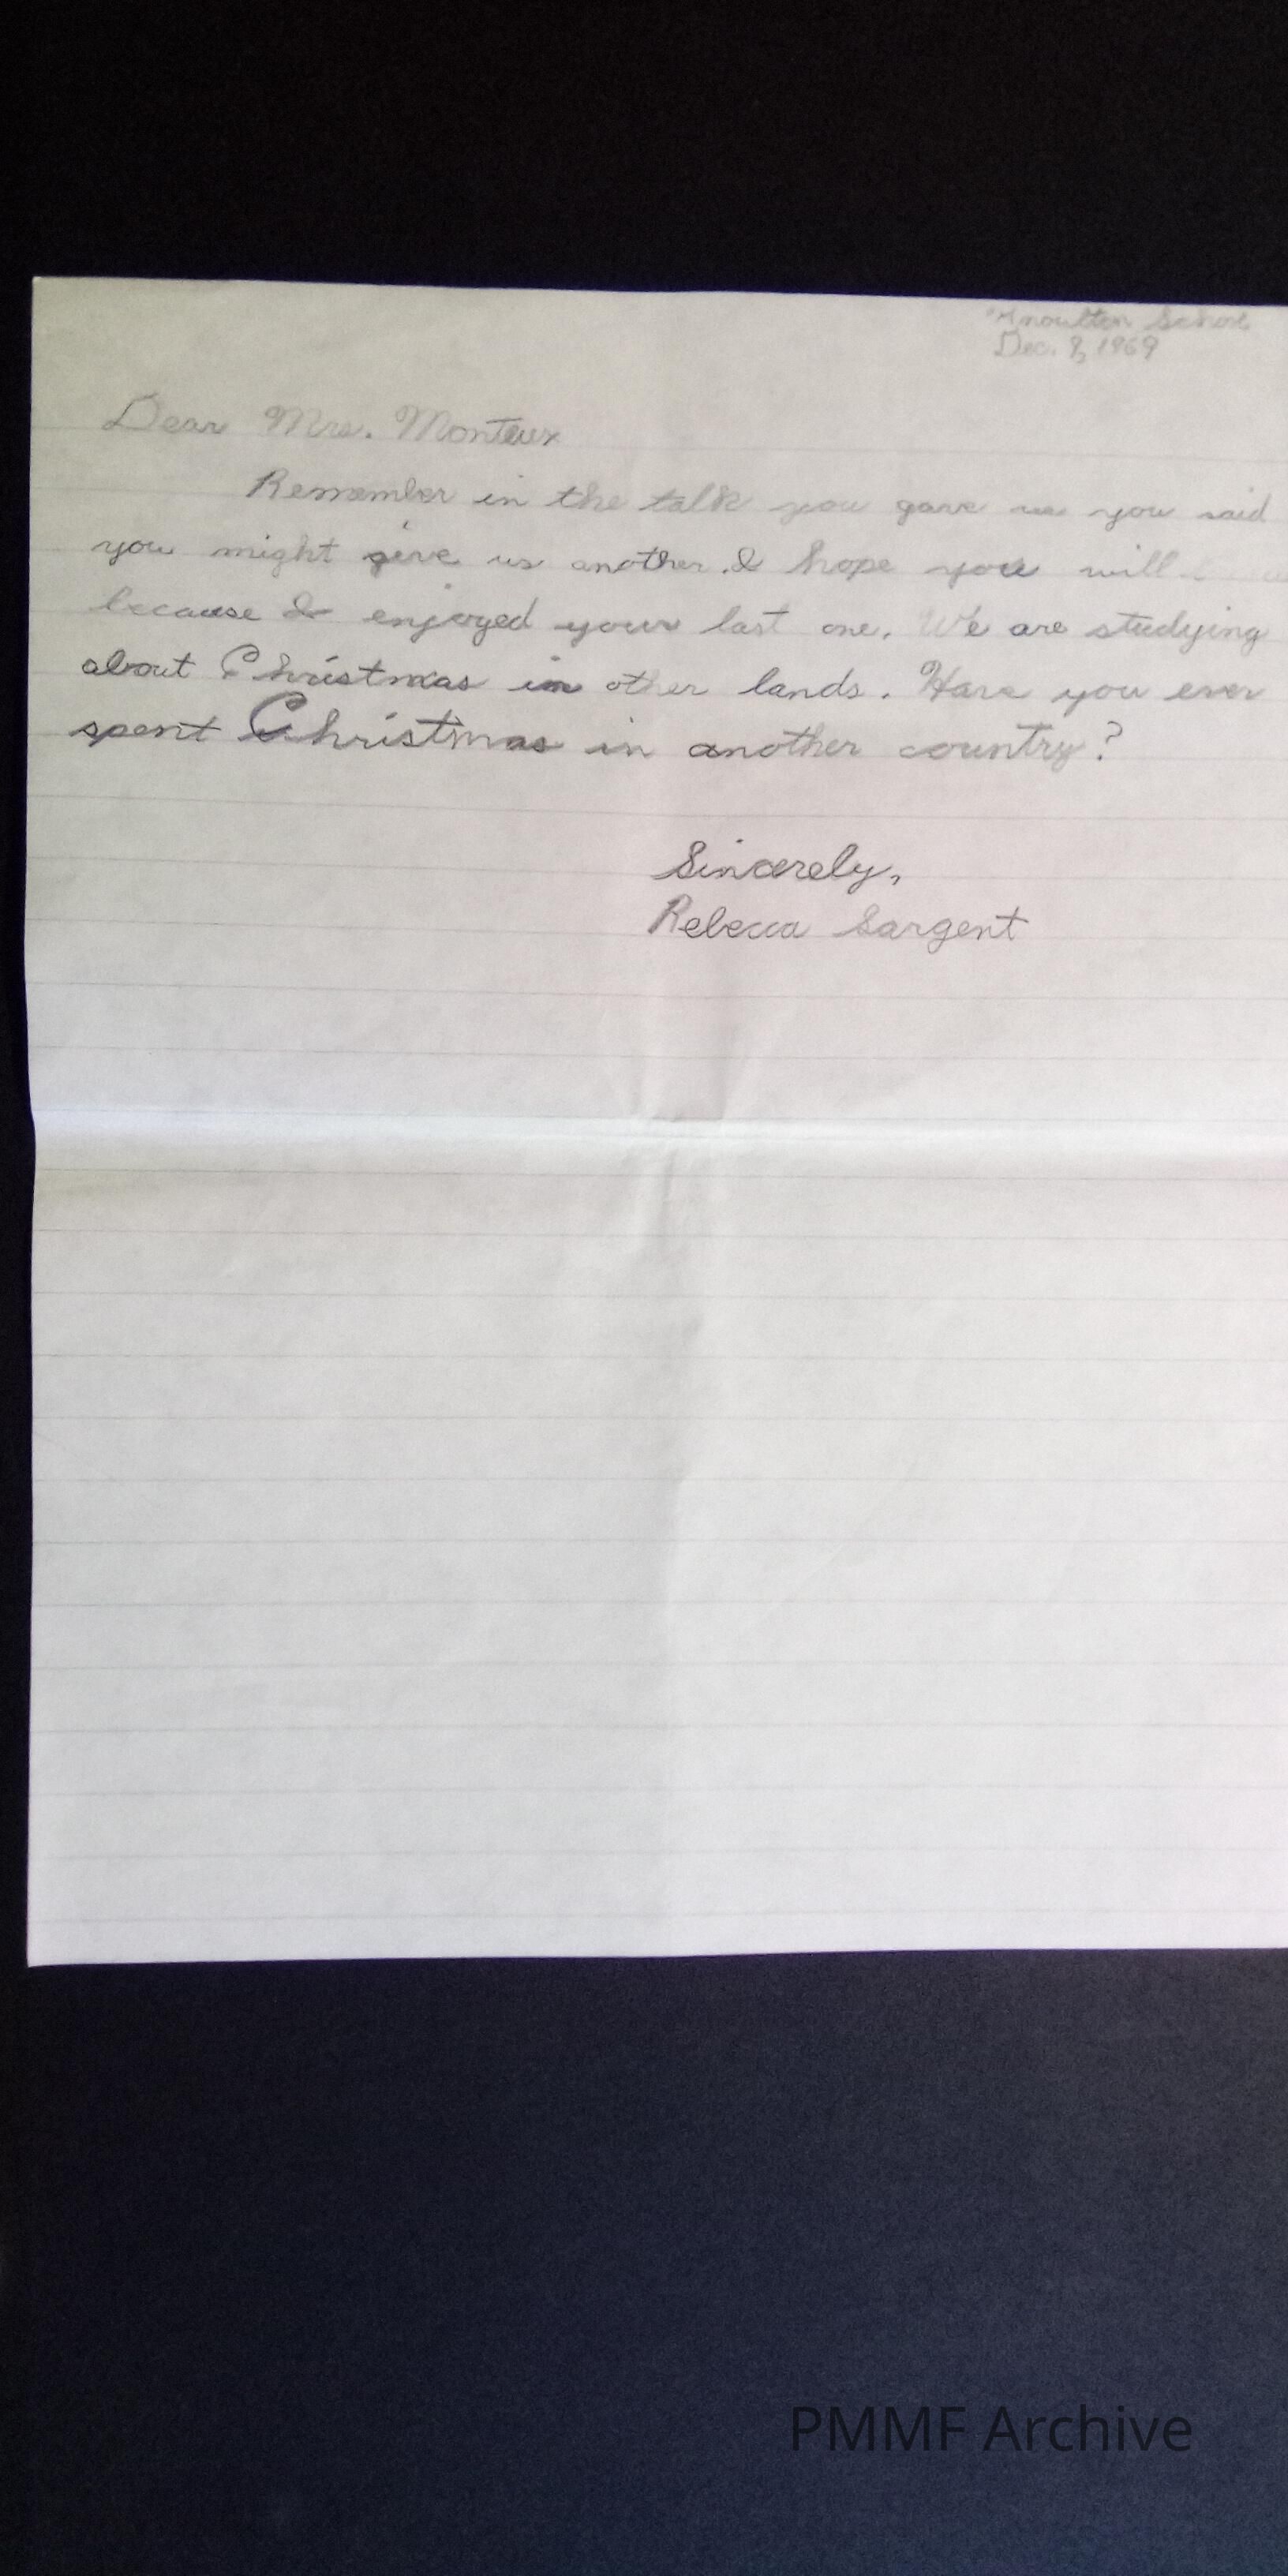 Knowlton School
Dec. 8, 1969
Dear Mrs. Monteux
Remember in the talk you gave us you said
you might give us another. I hope you will
because I enjoyed your last one. We are studying
about Christmas in other lands. Have you ever
spent Christmas in another country?
Sincerely,
Rebecca Sargent
PMMF Archive